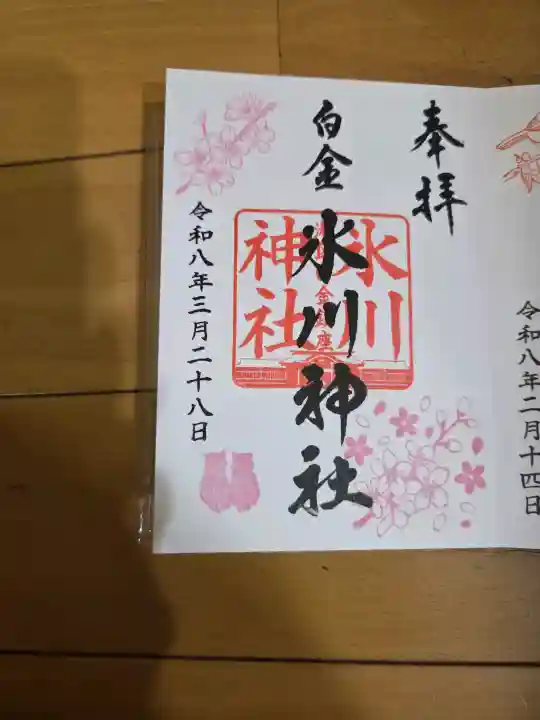 奉拝
白金 氷川神社
氷川
神社
令和八年三月二十八日
令和八年二月十四日